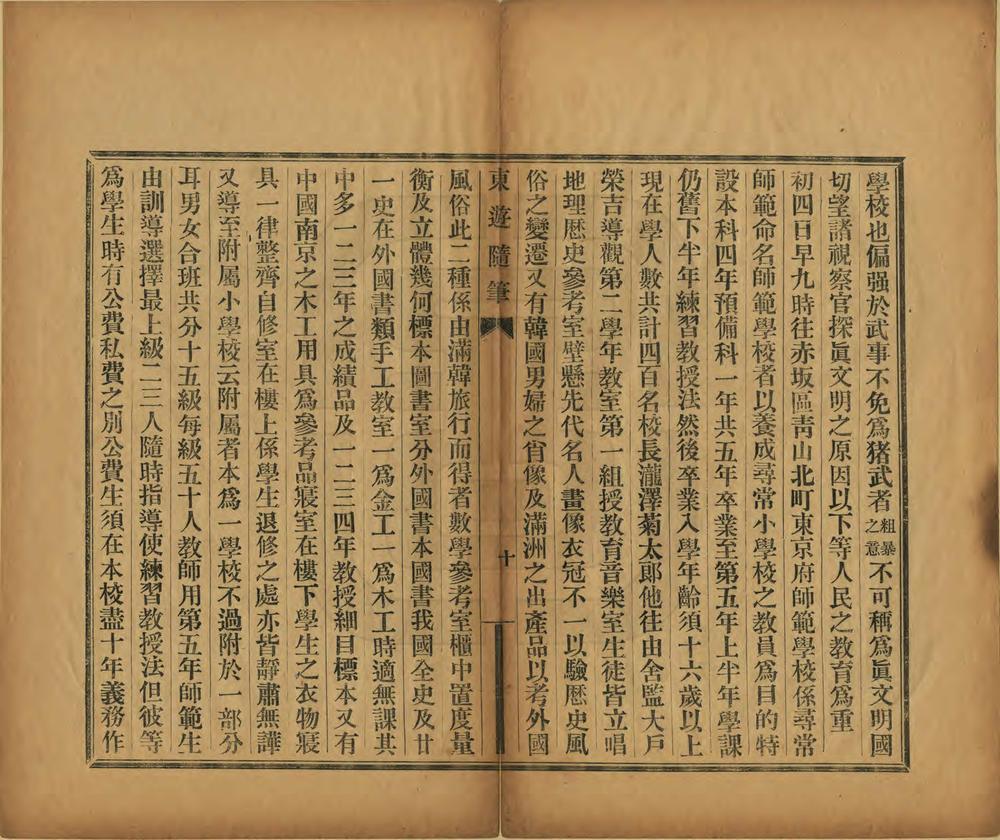 學校也偏强於武事不免爲猪武者粗暴之意不可稱爲眞文明國
切望諸視察官探眞文明之原因以下等人民之教育爲重
初四日早九時往赤坂區靑山北町東京府師範學校係尋常
師範命名師範學校者以養成尋常小學校之教員爲目的特
設本科四年預備科一年共五年卒業至第五年上半年學課
仍舊下半年練習教授法然後卒業入學年齡須十六歲以上
現在學人數共計四百名校長瀧澤菊太郎他往由舍監大戶
榮吉導觀第二學年教室第一組授教育音樂室生徒皆立唱
地理歷史參考室壁懸先代名人畫像衣冠不一以驗歷史風
俗之變遷又有韓國男婦之肖像及滿洲之出產品以考外國
東遊隨筆
十
風俗此二種係由滿韓旅行而得者數學參考室櫃中置度量
衡及立體幾何標本圖書室分外國書本國書我國全史及廿
一史在外國書類手工教室一爲金工一爲木工時適無課其
中多一二三年之成績品及一二三四年教授細目標本又有
中國南京之木工用具爲參考品寢室在樓下學生之衣物寢
具一律整齊自修室在樓上係學生退修之處亦皆靜肅無譁
又導至附屬小學校云附屬者本爲一學校不過附於一部分
耳男女合班共分十五級每級五十人教師用第五年師範生
由訓導選擇最上級二三人隨時指導使練習教授法但彼等
爲學生時有公費私費之別公費生須在本校盡十年義務作